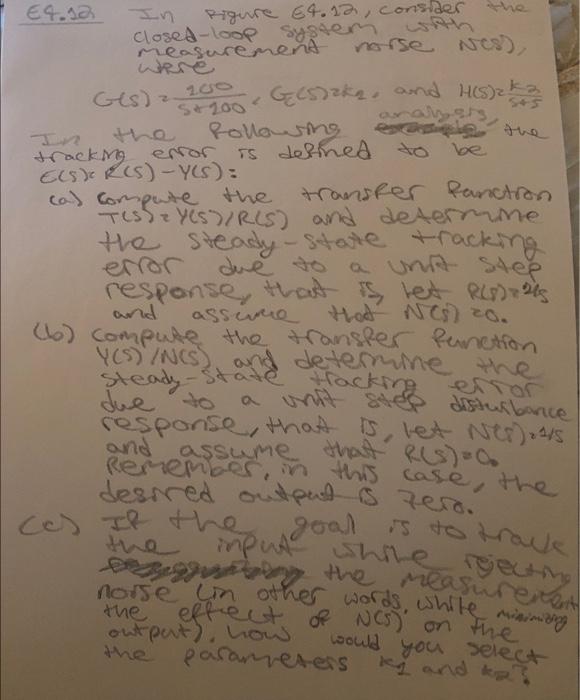 E4.12 In Figure E4.12, consider the
closed-loop system with
measurement noise N(s),
were
G(s) = 100/(s+100), Gc(s)=k1, and H(s)=k2/(s+5)
In the following analysis, the
tracking error is defined to be
E(s)=R(s)-Y(s):
(a) Compute the transfer function
T(s)=Y(s)/R(s) and determine
the steady-state tracking
error due to a unit step
response, that is, let R(s)=1/s
and assume that N(s)=0.
(b) Compute the transfer function
Y(s)/N(s) and determine the
steady-state tracking error
due to a unit step disturbance
response, that is, let N(s)=1/s
and assume that R(s)=0.
Remember, in this case, the
desired output is zero.
(c) If the goal is to track
the input while rejecting
the measurement
noise (in other words, while minimizing
the effect of N(s) on the
output), how would you select
the parameters k1 and k2?